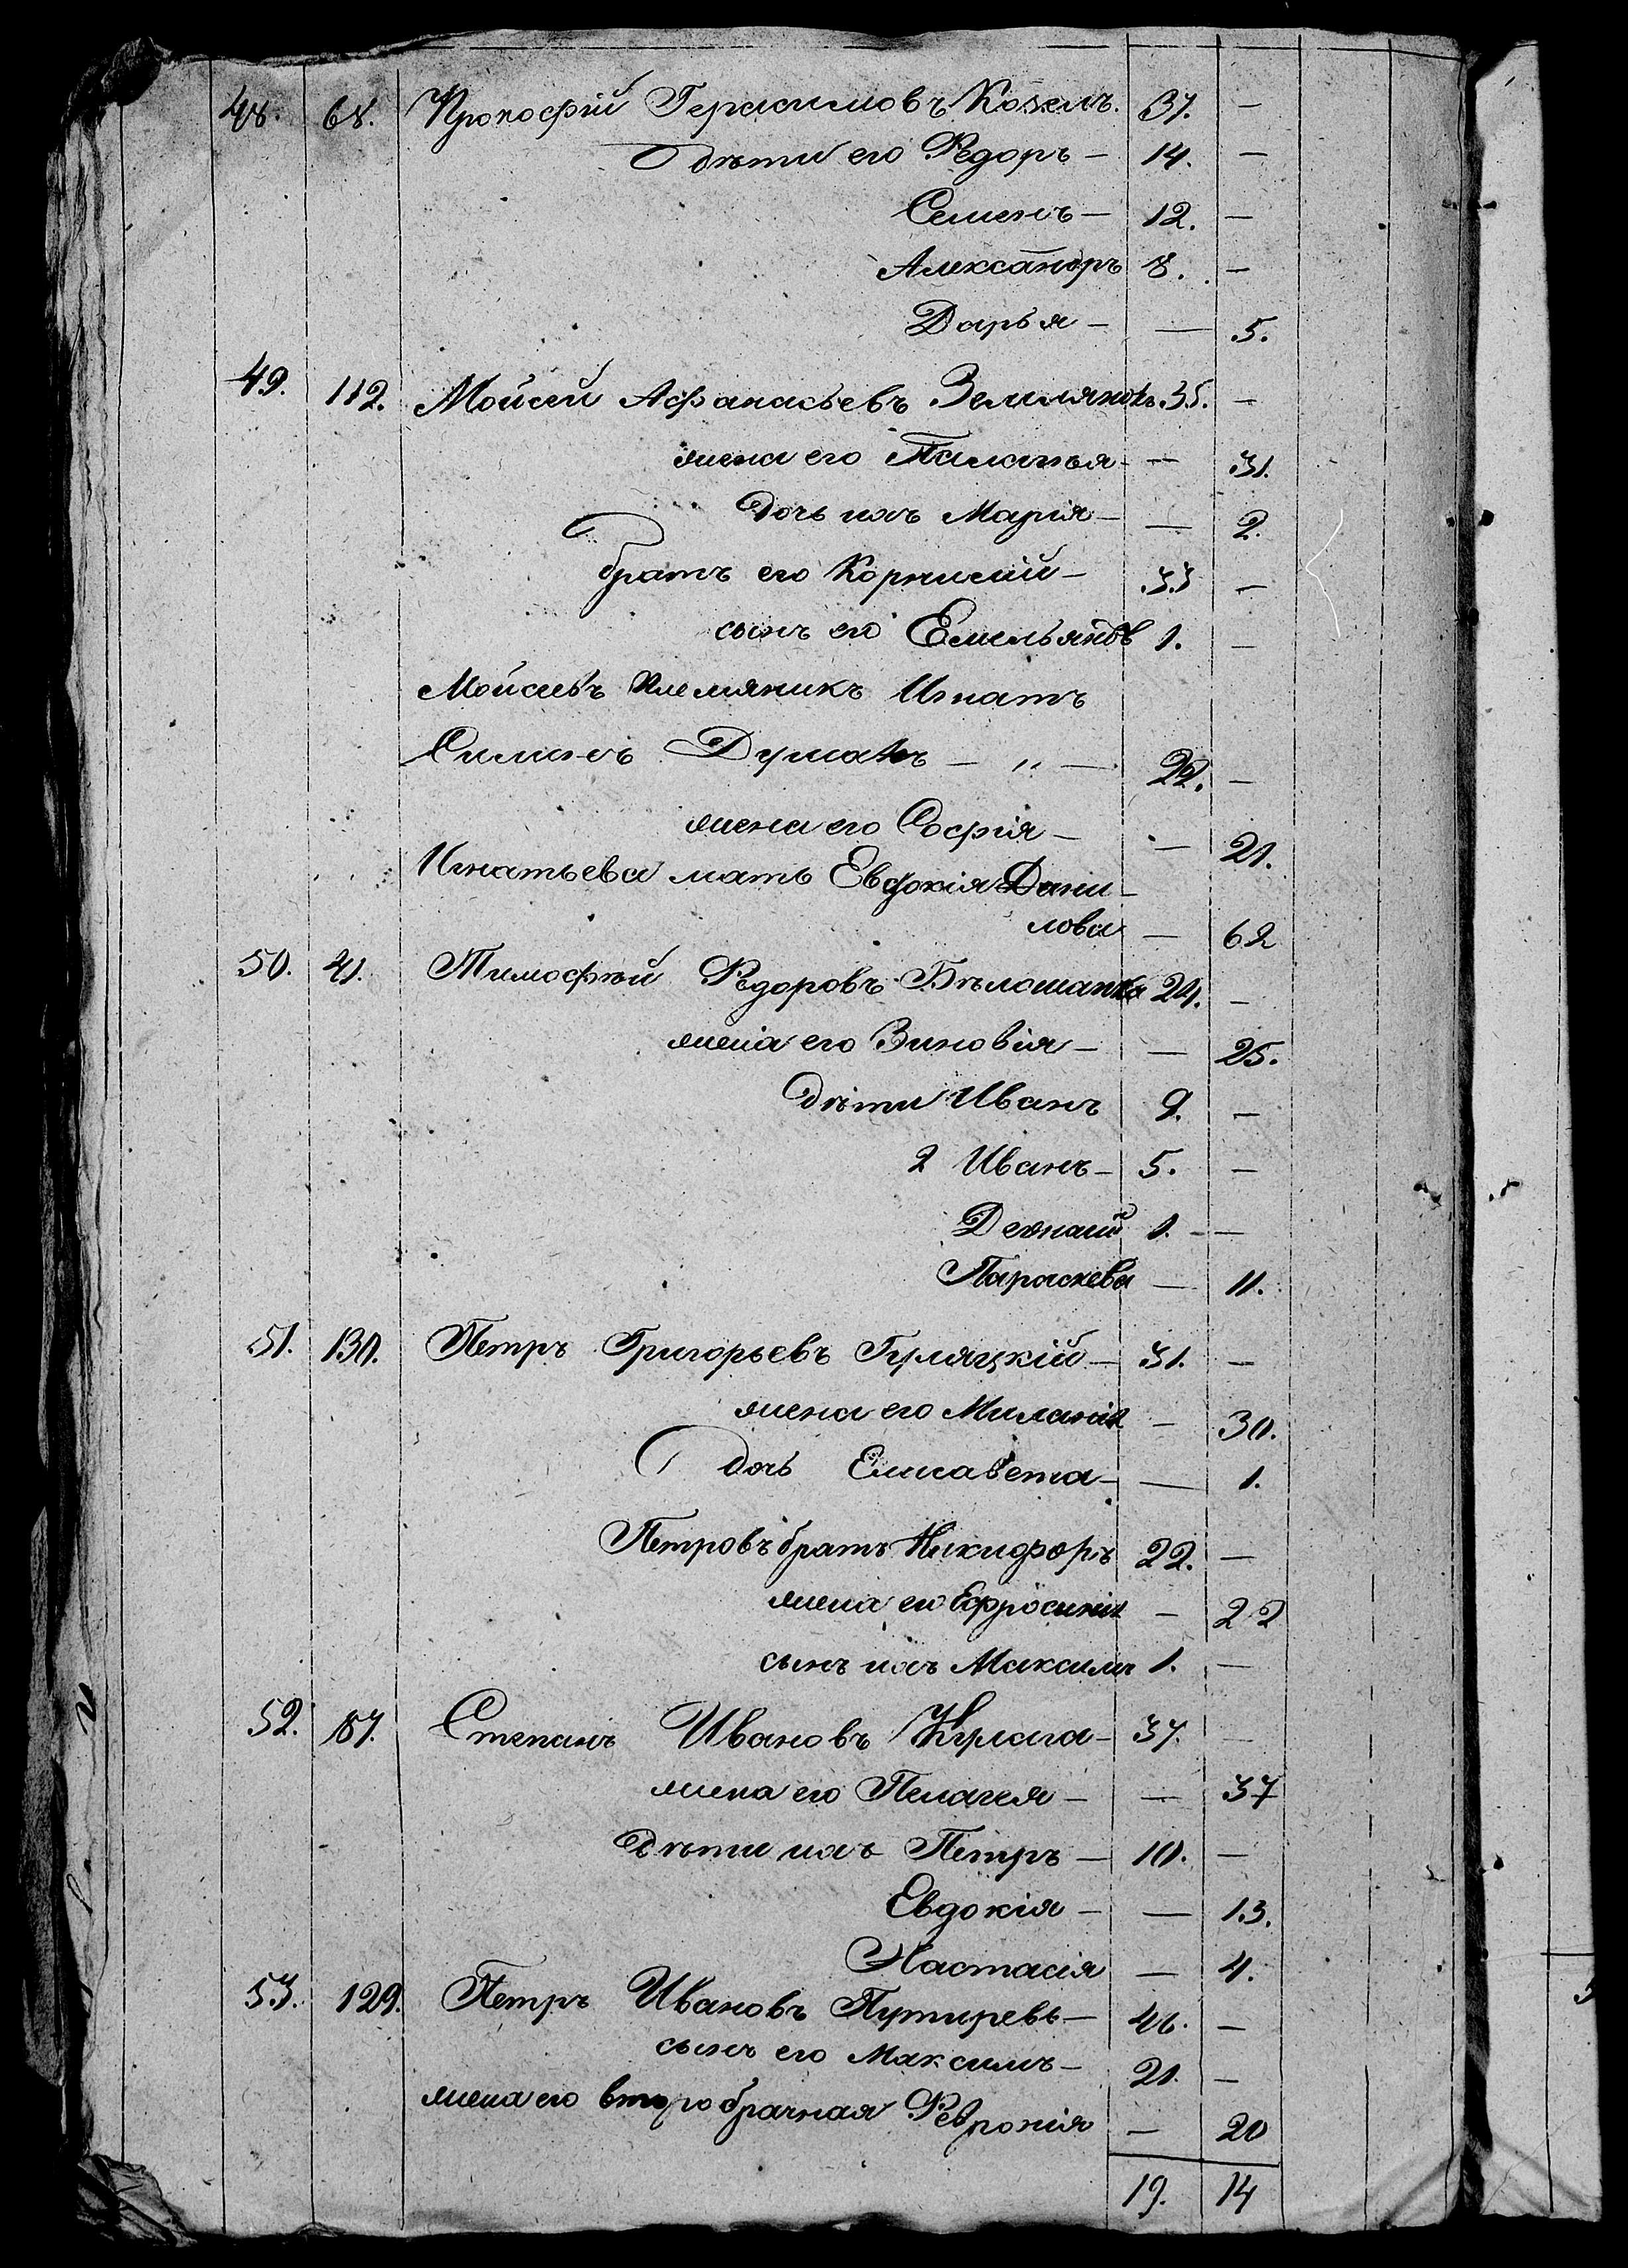 48. 68. Прокофій Герасимовъ Козелъ. 37. —
дѣти его Ѳедоръ — 14. —
Семенъ — 12. —
Александръ 8. —
Дарья — — 5.
49. 112. Мойсей Афанасьевъ Землянокъ. 35. —
жена его Палагья — — 31.
дочь ихъ Марія — — 2.
братъ его Корнилій — 33 —
сынъ его Емельянъ 1. —
Мойсеевъ племяникъ Игнатъ
Силинъ — „ — 22. —
жена его Софія — — 21.
Игнатьева мать Евдокія Дани-
лова — 62
50. 41. Тимофѣй Ѳедоровъ Бѣлошапка 24. —
жена его Зиновія — — 25.
дѣти Иванъ 9. —
2 Иванъ — 5. —
1. — —
Параскева — 11.
51. 130. Петръ Григорьевъ Гуляцкій — 31. —
жена его Миланія — 30.
дочь Елисавета — — 1.
Петровъ братъ Никифоръ 22. —
жена его Ефросинія — 22
сынъ ихъ Максимъ 1. —
52. 87. Степанъ Ивановъ Кулага — 37. —
жена его Пелагея — — 37
дѣти ихъ Петръ — 10. —
Евдокія — — 13.
Настасія — 4.
53. 129. Петръ Ивановъ Путиревъ — 46. —
сынъ его Максимъ — 21. —
жена его второбрачная Февронія — 20
19. 14